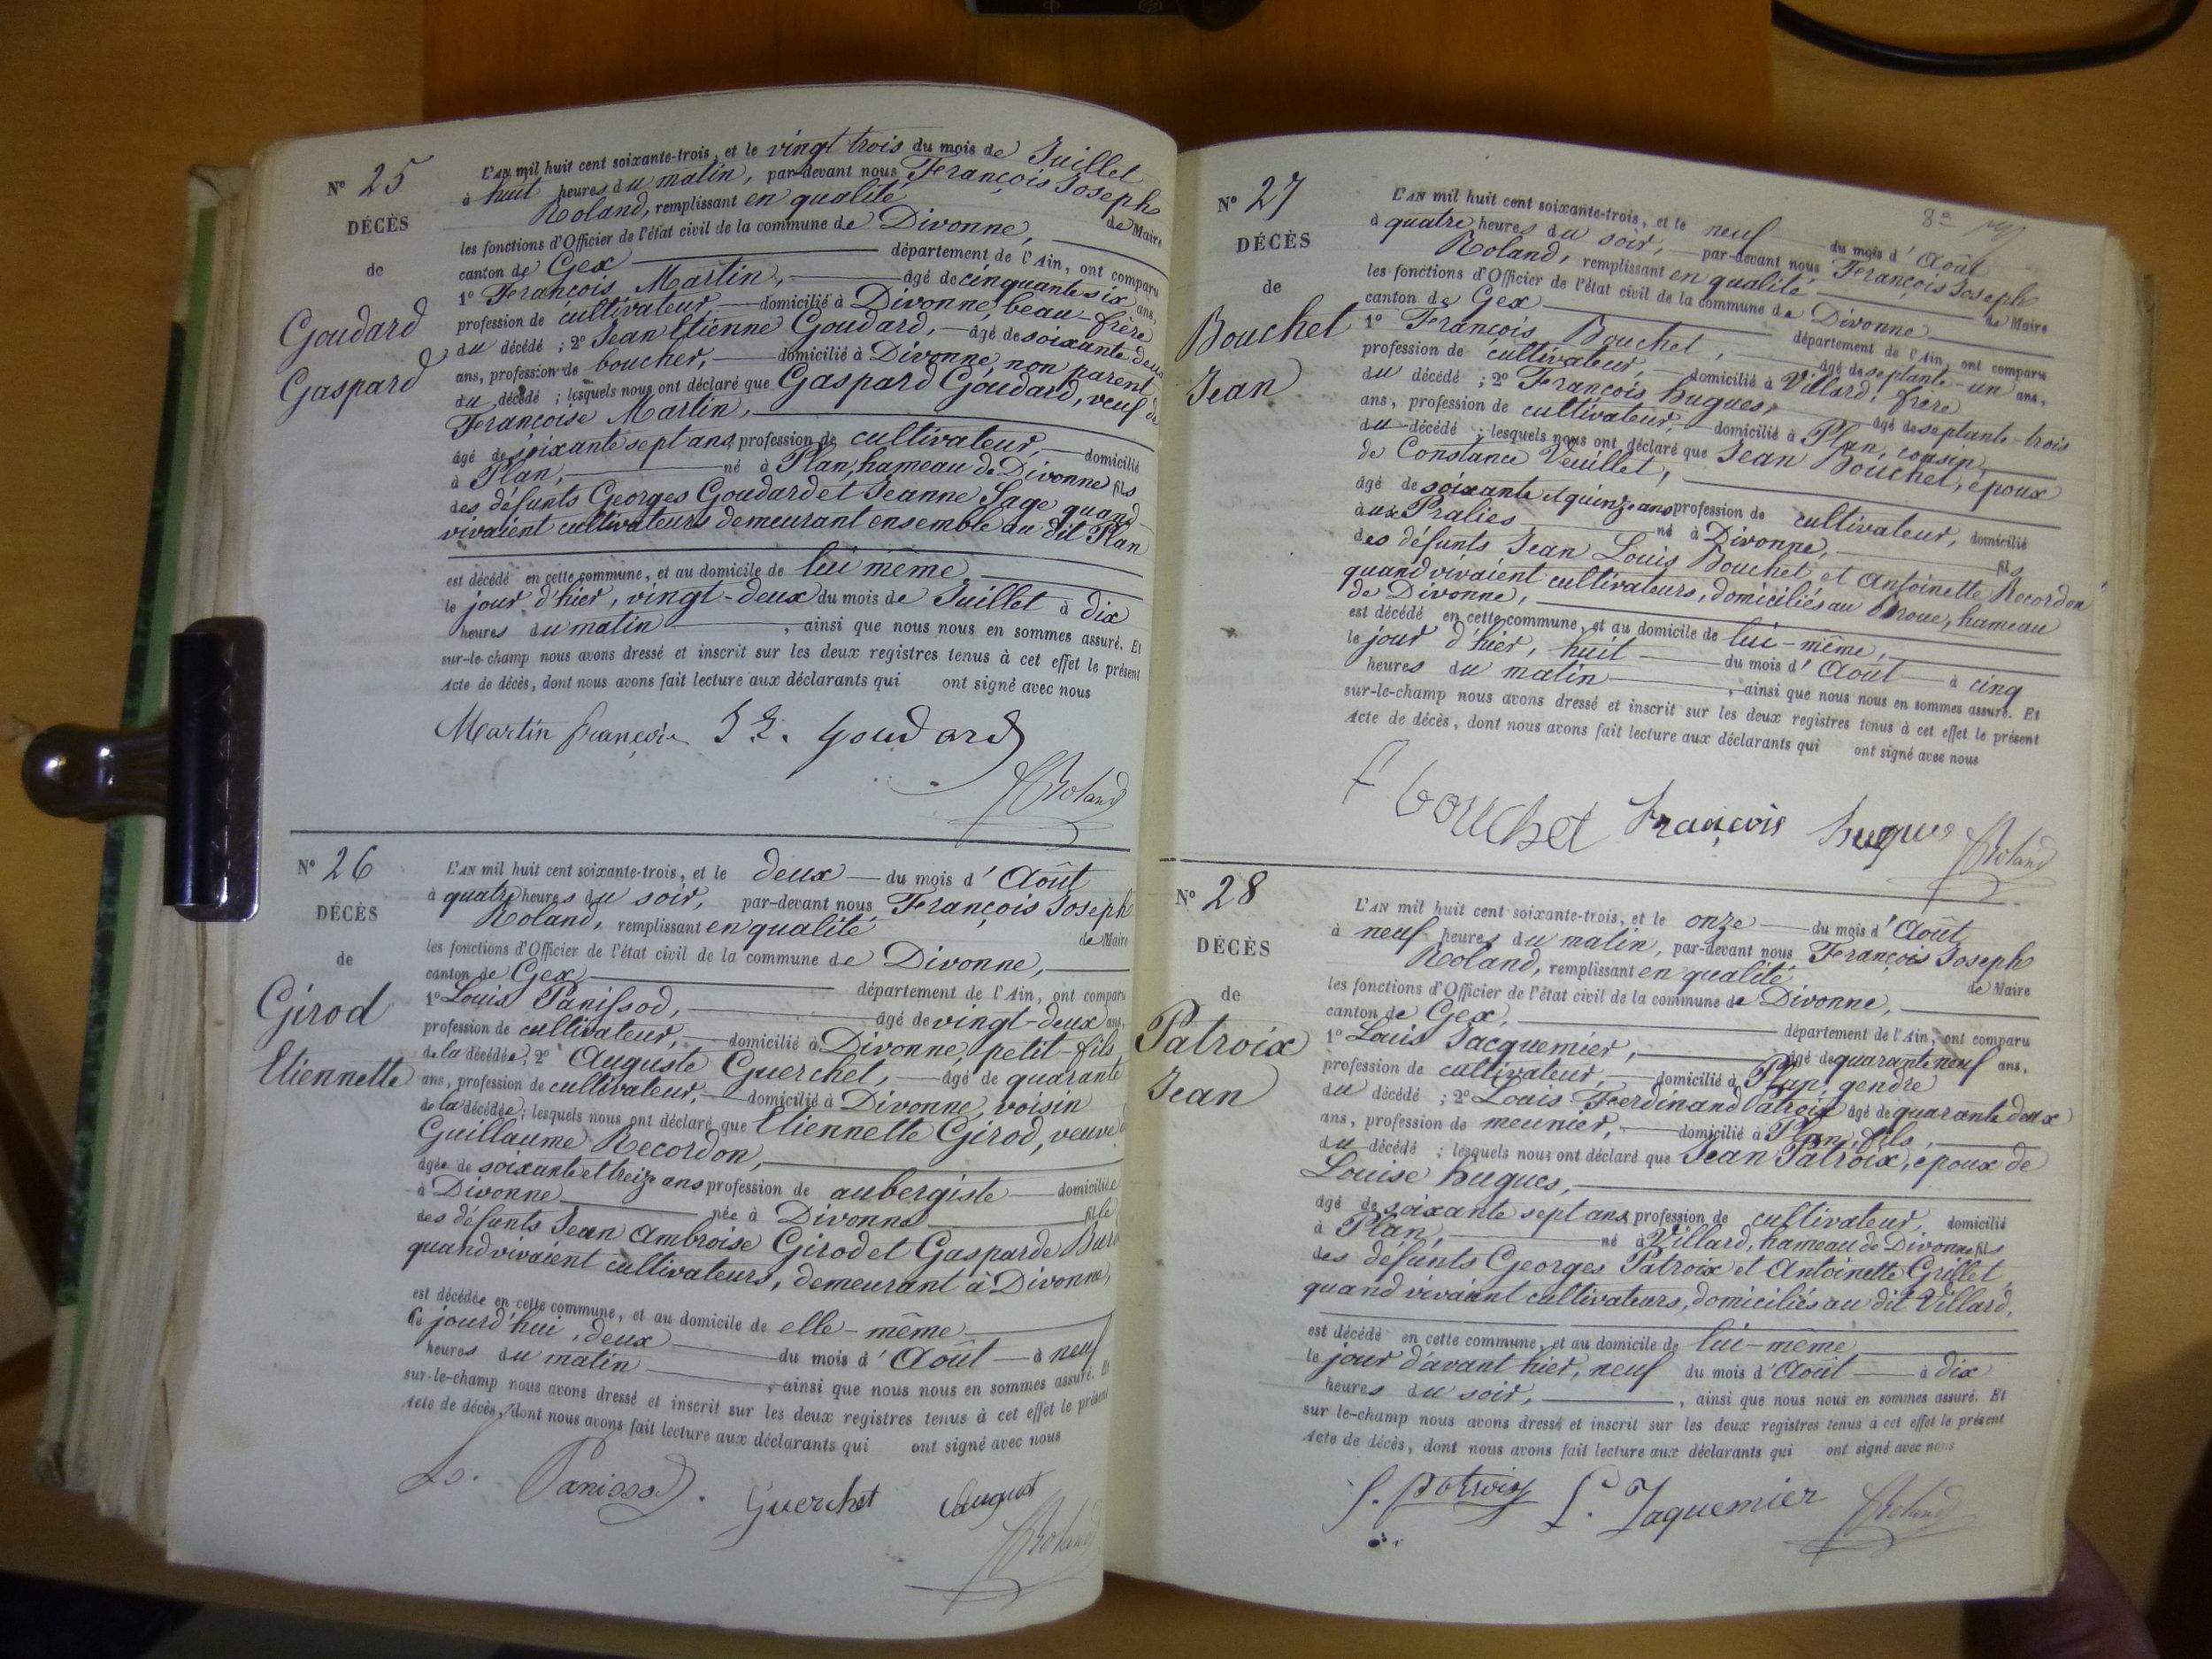 N° 25
DÉCÈS
de
Goudard
Gaspard
L'AN mil huit cent soixante-trois, et le vingt trois du mois de Juillet
à huit heures du matin, par-devant nous François Joseph
Roland, remplissant en qualité de Maire
les fonctions d'Officier de l'état civil de la commune de Divonne,
canton de Gex département de l'Ain, ont comparu
1° François Martin, âgé de cinquante six ans,
profession de cultivateur, domicilié à Divonne, beau-frère
du décédé ; 2° Jean Etienne Goudard, âgé de soixante deux
ans, profession de boucher, domicilié à Divonne, non parent
du décédé ; lesquels nous ont déclaré que Gaspard Goudard, veuf de
Françoise Martin,
âgé de soixante sept ans, profession de cultivateur, domicilié
à Plan, né à Plan, hameau de Divonne fils
des défunts Georges Goudard et Jeanne Sage quand
vivaient cultivateurs demeurant ensemble au dit Plan
est décédé en cette commune, et au domicile de lui même
le jour d'hier, vingt-deux du mois de Juillet à dix
heures du matin, ainsi que nous nous en sommes assuré. Et
sur-le-champ nous avons dressé et inscrit sur les deux registres tenus à cet effet le présent
Acte de décès, dont nous avons fait lecture aux déclarants qui ont signé avec nous
Martin françois J E. Goudard
Roland
N° 26
DÉCÈS
de
Girod
Etiennette
L'AN mil huit cent soixante-trois, et le deux du mois d'Août
à quatre heures du soir, par-devant nous François Joseph
Roland, remplissant en qualité de Maire
les fonctions d'Officier de l'état civil de la commune de Divonne,
canton de Gex département de l'Ain, ont comparu
1° Louis Panissod, âgé de vingt-deux ans,
profession de cultivateur, domicilié à Divonne, petit-fils
de la décédée ; 2° Auguste Guerchet, âgé de quarante
ans, profession de cultivateur, domicilié à Divonne, voisin
de la décédée ; lesquels nous ont déclaré que Etiennette Girod, veuve
Guillaume Recordon,
âgée de soixante et treize ans profession de aubergiste domiciliée
à Divonne née à Divonne fille
des défunts Jean Ambroise Girod et Gasparde
quand vivaient cultivateurs, demeurant à Divonne,
est décédée en cette commune, et au domicile de elle-même
le jourd'hui, deux du mois d'Août à neuf
heures du matin, ainsi que nous nous en sommes assuré. Et
sur-le-champ nous avons dressé et inscrit sur les deux registres tenus à cet effet le présent
Acte de décès, dont nous avons fait lecture aux déclarants qui ont signé avec nous
Ls. Panissod. Guerchet August
Roland
8e
N° 27
DÉCÈS
de
Bouchet
Jean
L'AN mil huit cent soixante-trois, et le neuf du mois d'Août
à quatre heures du soir, par-devant nous François Joseph
Roland, remplissant en qualité de Maire
les fonctions d'Officier de l'état civil de la commune de Divonne
canton de Gex département de l'Ain, ont comparu
1° François Bouchet, âgé de septante-un ans,
profession de cultivateur, domicilié à Villard, frère
du décédé ; 2° François hugues, âgé de septante-trois
ans, profession de cultivateur, domicilié à Plan, cousin
du décédé ; lesquels nous ont déclaré que Jean Bouchet, époux
de Constance Veuillet,
âgé de soixante et quinze ans profession de cultivateur, domicilié
aux Pralies né à Divonne, fils
des défunts Jean Louis Bouchet et Antoinette Recordon
quand vivaient cultivateurs, domiciliés au hameau
de Divonne,
est décédé en cette commune, et au domicile de lui-même,
le jour d'hier, huit du mois d'Août à cinq
heures du matin, ainsi que nous nous en sommes assuré. Et
sur-le-champ nous avons dressé et inscrit sur les deux registres tenus à cet effet le présent
Acte de décès, dont nous avons fait lecture aux déclarants qui ont signé avec nous
f bouchet françois hugues Roland
N° 28
DÉCÈS
de
Patroix
Jean
L'AN mil huit cent soixante-trois, et le onze du mois d'Août
à neuf heures du matin, par-devant nous François Joseph
Roland, remplissant en qualité de Maire
les fonctions d'Officier de l'état civil de la commune de Divonne,
canton de Gex, département de l'Ain, ont comparu
1° Louis Jacquemier, âgé de quarante neuf ans,
profession de cultivateur, domicilié à Plan, gendre
du décédé ; 2° Louis Ferdinand Patroix âgé de quarante deux
ans, profession de meunier, domicilié à Plan, fils,
du décédé ; lesquels nous ont déclaré que Jean Patroix, époux de
Louise hugues,
âgé de soixante sept ans, profession de cultivateur, domicilié
à Plan, né à Villard, hameau de Divonne fils
des défunts Georges Patroix et Antoinette Grillet
quand vivaient cultivateurs, domiciliés au dit Villard,
est décédé en cette commune, et au domicile de lui-même
le jour d'avant hier, neuf du mois d'Août à dix
heures du soir, ainsi que nous nous en sommes assuré. Et
sur le-champ nous avons dressé et inscrit sur les deux registres tenus à cet effet le présent
Acte de décès, dont nous avons fait lecture aux déclarants qui ont signé avec nous
f. patroix L. Jaquemier Roland